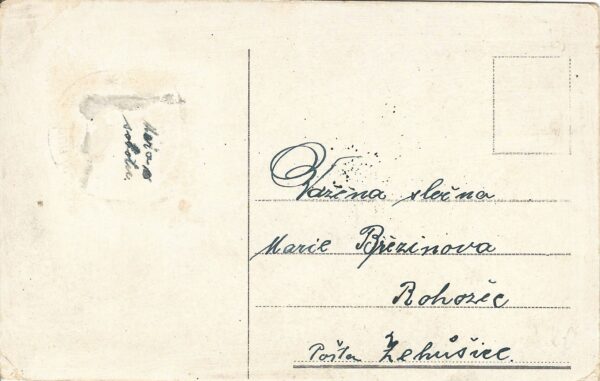 sobotu
Važena slečna
Marie Březinova
Rohozec
Pošta Žehušice.